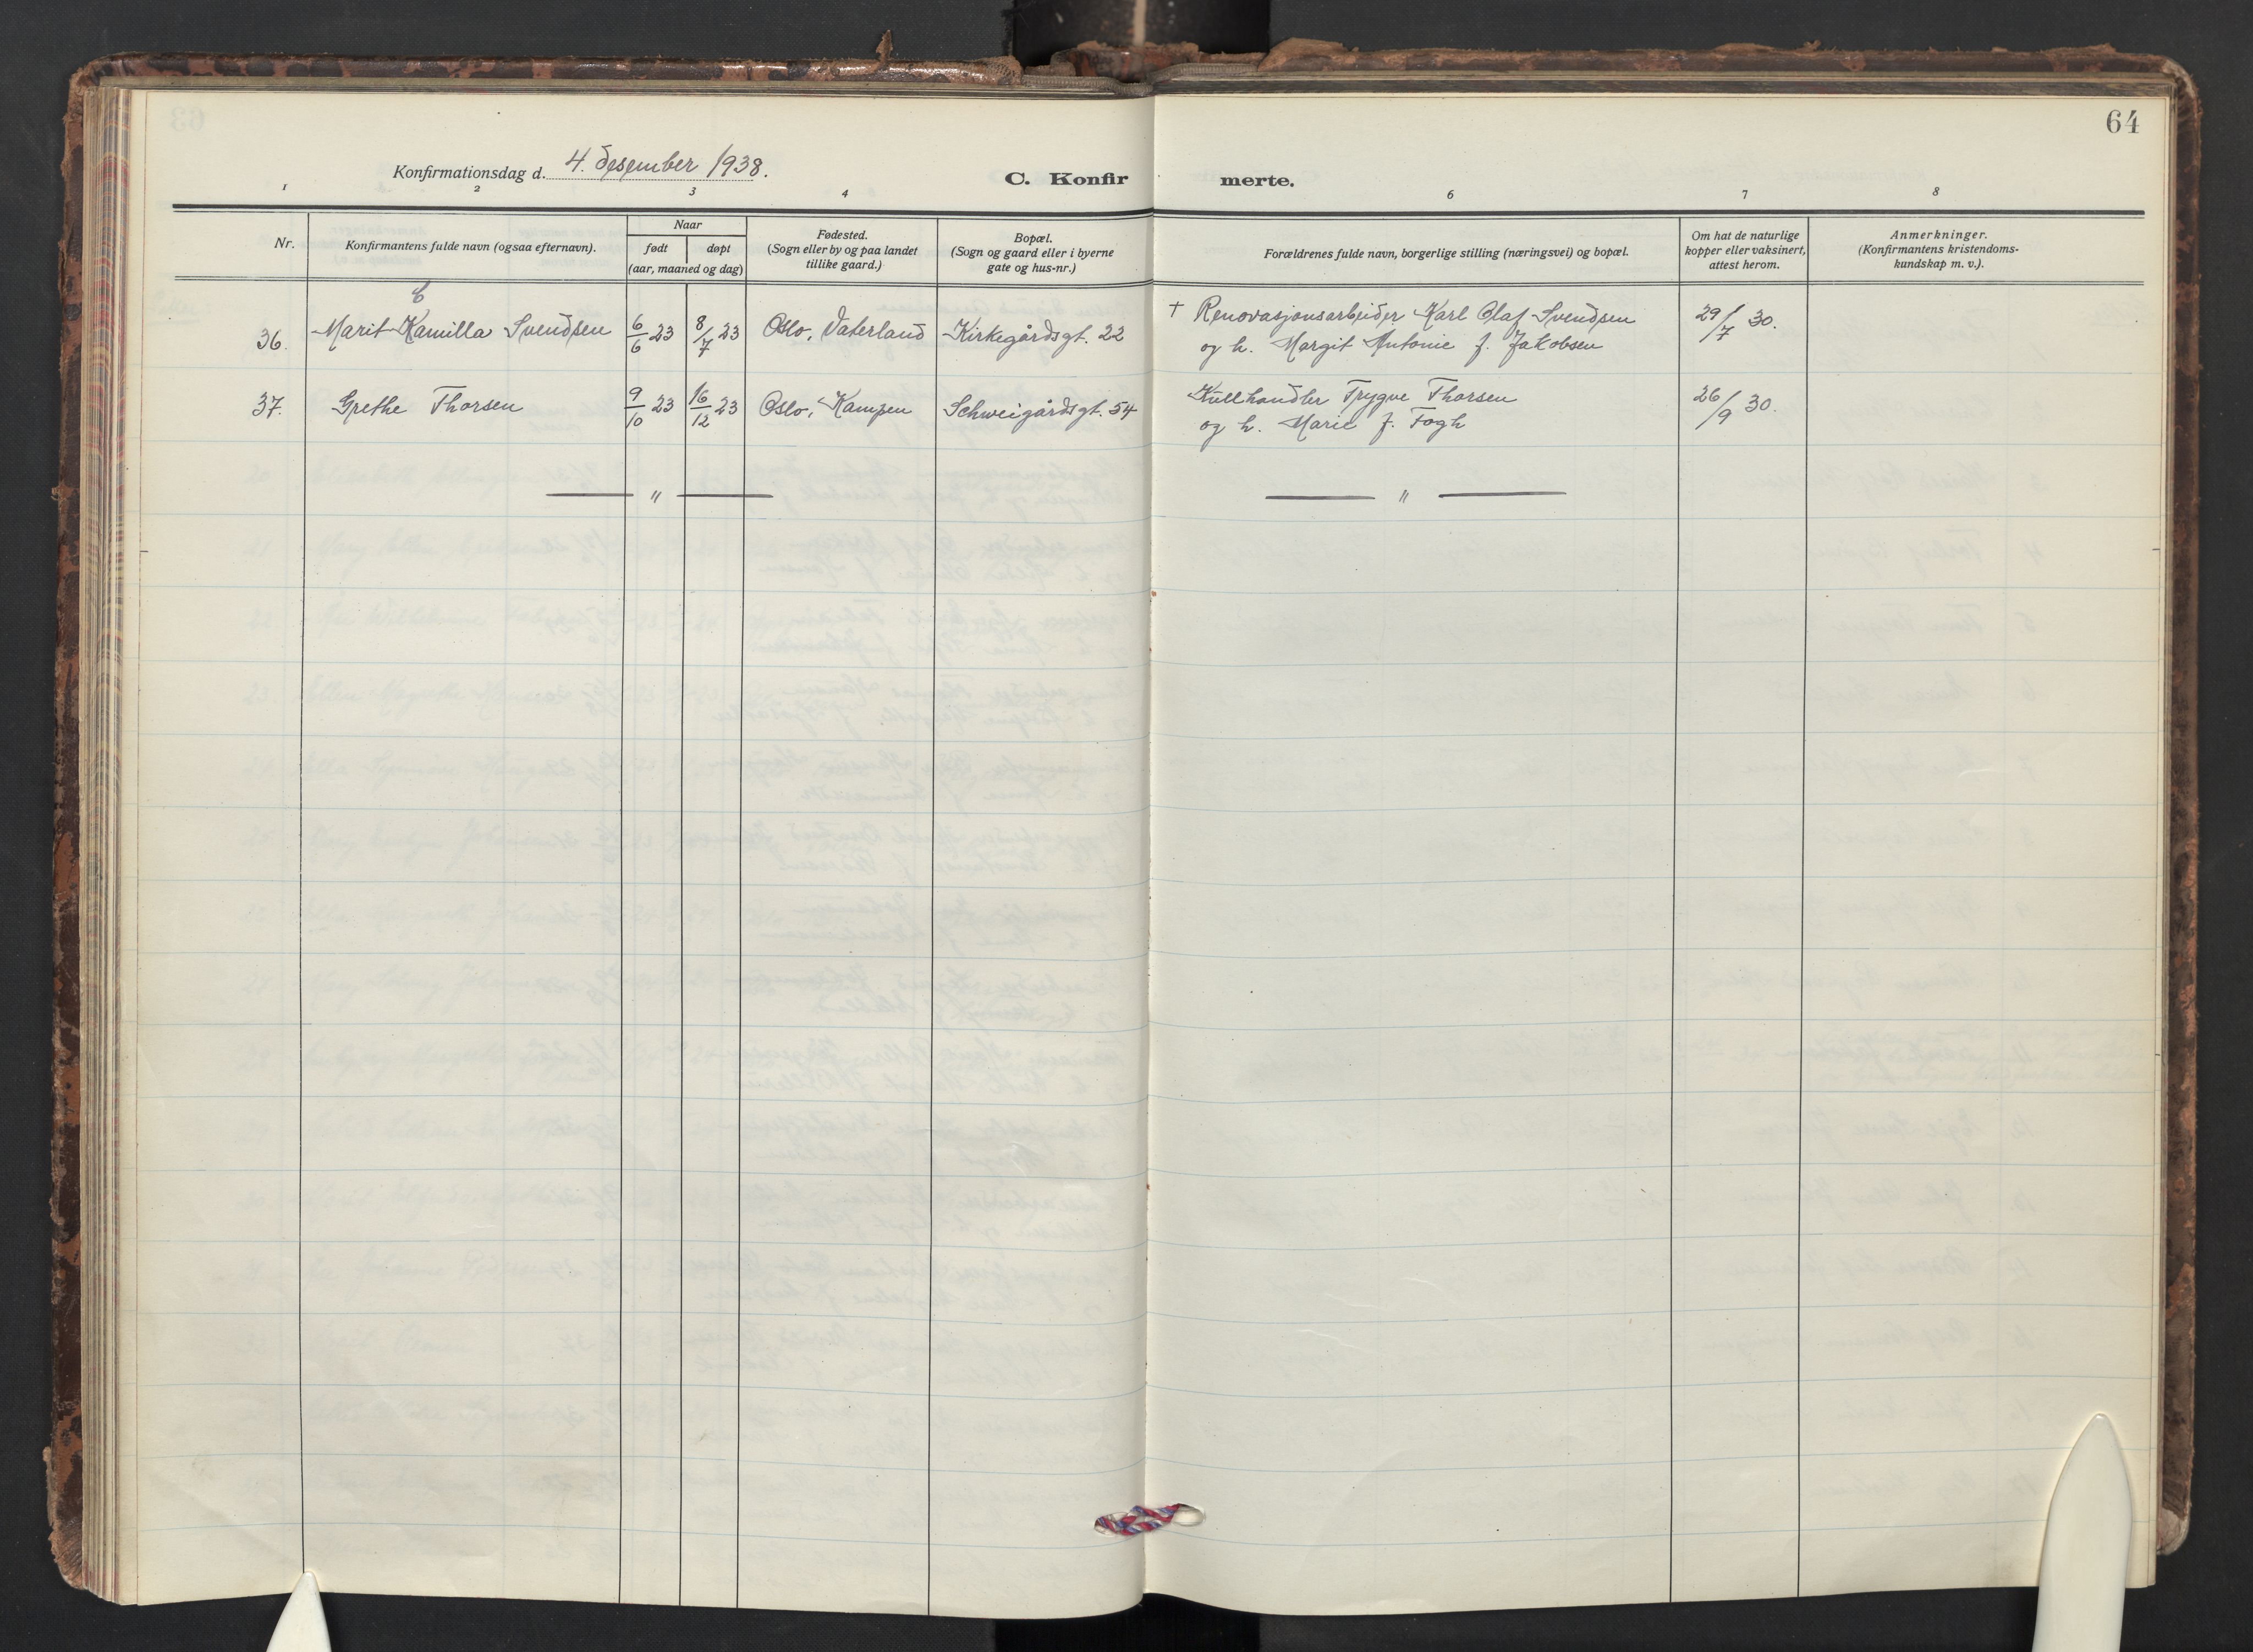 64
Konfirmationsdag d. 4. desember 1938.
C. Konfir merte.
1 2 3 4 6 7 8
Nr.
Konfirmantens fulde navn (ogsaa efternavn).
Naar
født døpt
(aar, maaned og dag)
Fødested.
(Sogn eller by og paa landet
tillike gaard.)
Bopæl.
(Sogn og gaard eller i byerne
gate og hus-nr.)
Forældrenes fulde navn, borgerlige stilling (næringsvei) og bopæl.
Om hat de naturlige
kopper eller vaksinert,
attest herom.
Anmerkninger.
(Konfirmantens kristendoms-
kundskap m. v.).
36. Marit Kamilla Svendsen 6/6 23 8/7 23 Oslo, Vaterland Kirkegårdsgt. 22 + Renovasjonsarbeider Karl Olaf Svendsen 29/7 30.
og h. Margit Antonie f. Jakobsen
37. Grethe Thorsen 9/10 23 16/12 23 Oslo, Kampen Schweigårdsgt. 54 Kullhandler Trygve Thorsen 26/9 30.
og h. Marie f. Fogh
— " — — " —